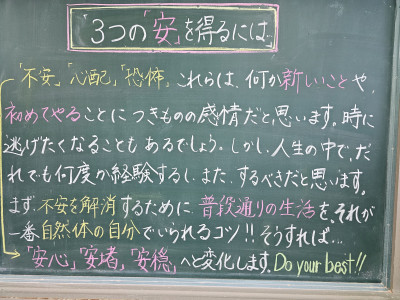 3つの「安」を得るには…
「不安」「心配」「恐怖」これらは、何か新しいことや、
初めてやることにつきものの感情だと思います。時に
逃げたくなることもあるでしょう。しかし、人生の中で、だ
れでも何度か経験するし、また、するべきだと思います。
まず、不安を解消するために、普段通りの生活を、それが
一番自然体の自分でいられるコツ!!そうすれば…
「安心」「安堵」「安穏」へと変化します。Do your best!!